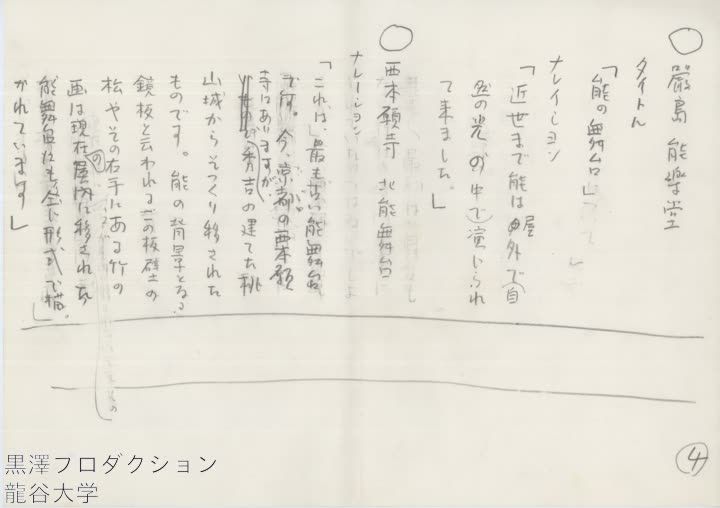 ○ 嚴島 能学堂
タイトル
「能の舞台」
ナレイション
「近世まで能は屋外で自
然の光の中で演じられ
て来ました。」
○ 西本願寺 北能舞台
ナレーション
「これは、最も古い能舞台
です。今、京都の西本願
寺はありますが、
秀吉の建てた桃
山城からそっくり移された
ものです。能の背景となる
鏡板と云われるこの板壁の
松やその右手にある竹の
画は現在屋内に移された
能舞台にも全じ形式で描
かれています」
④
黒澤プロダクション
龍谷大学